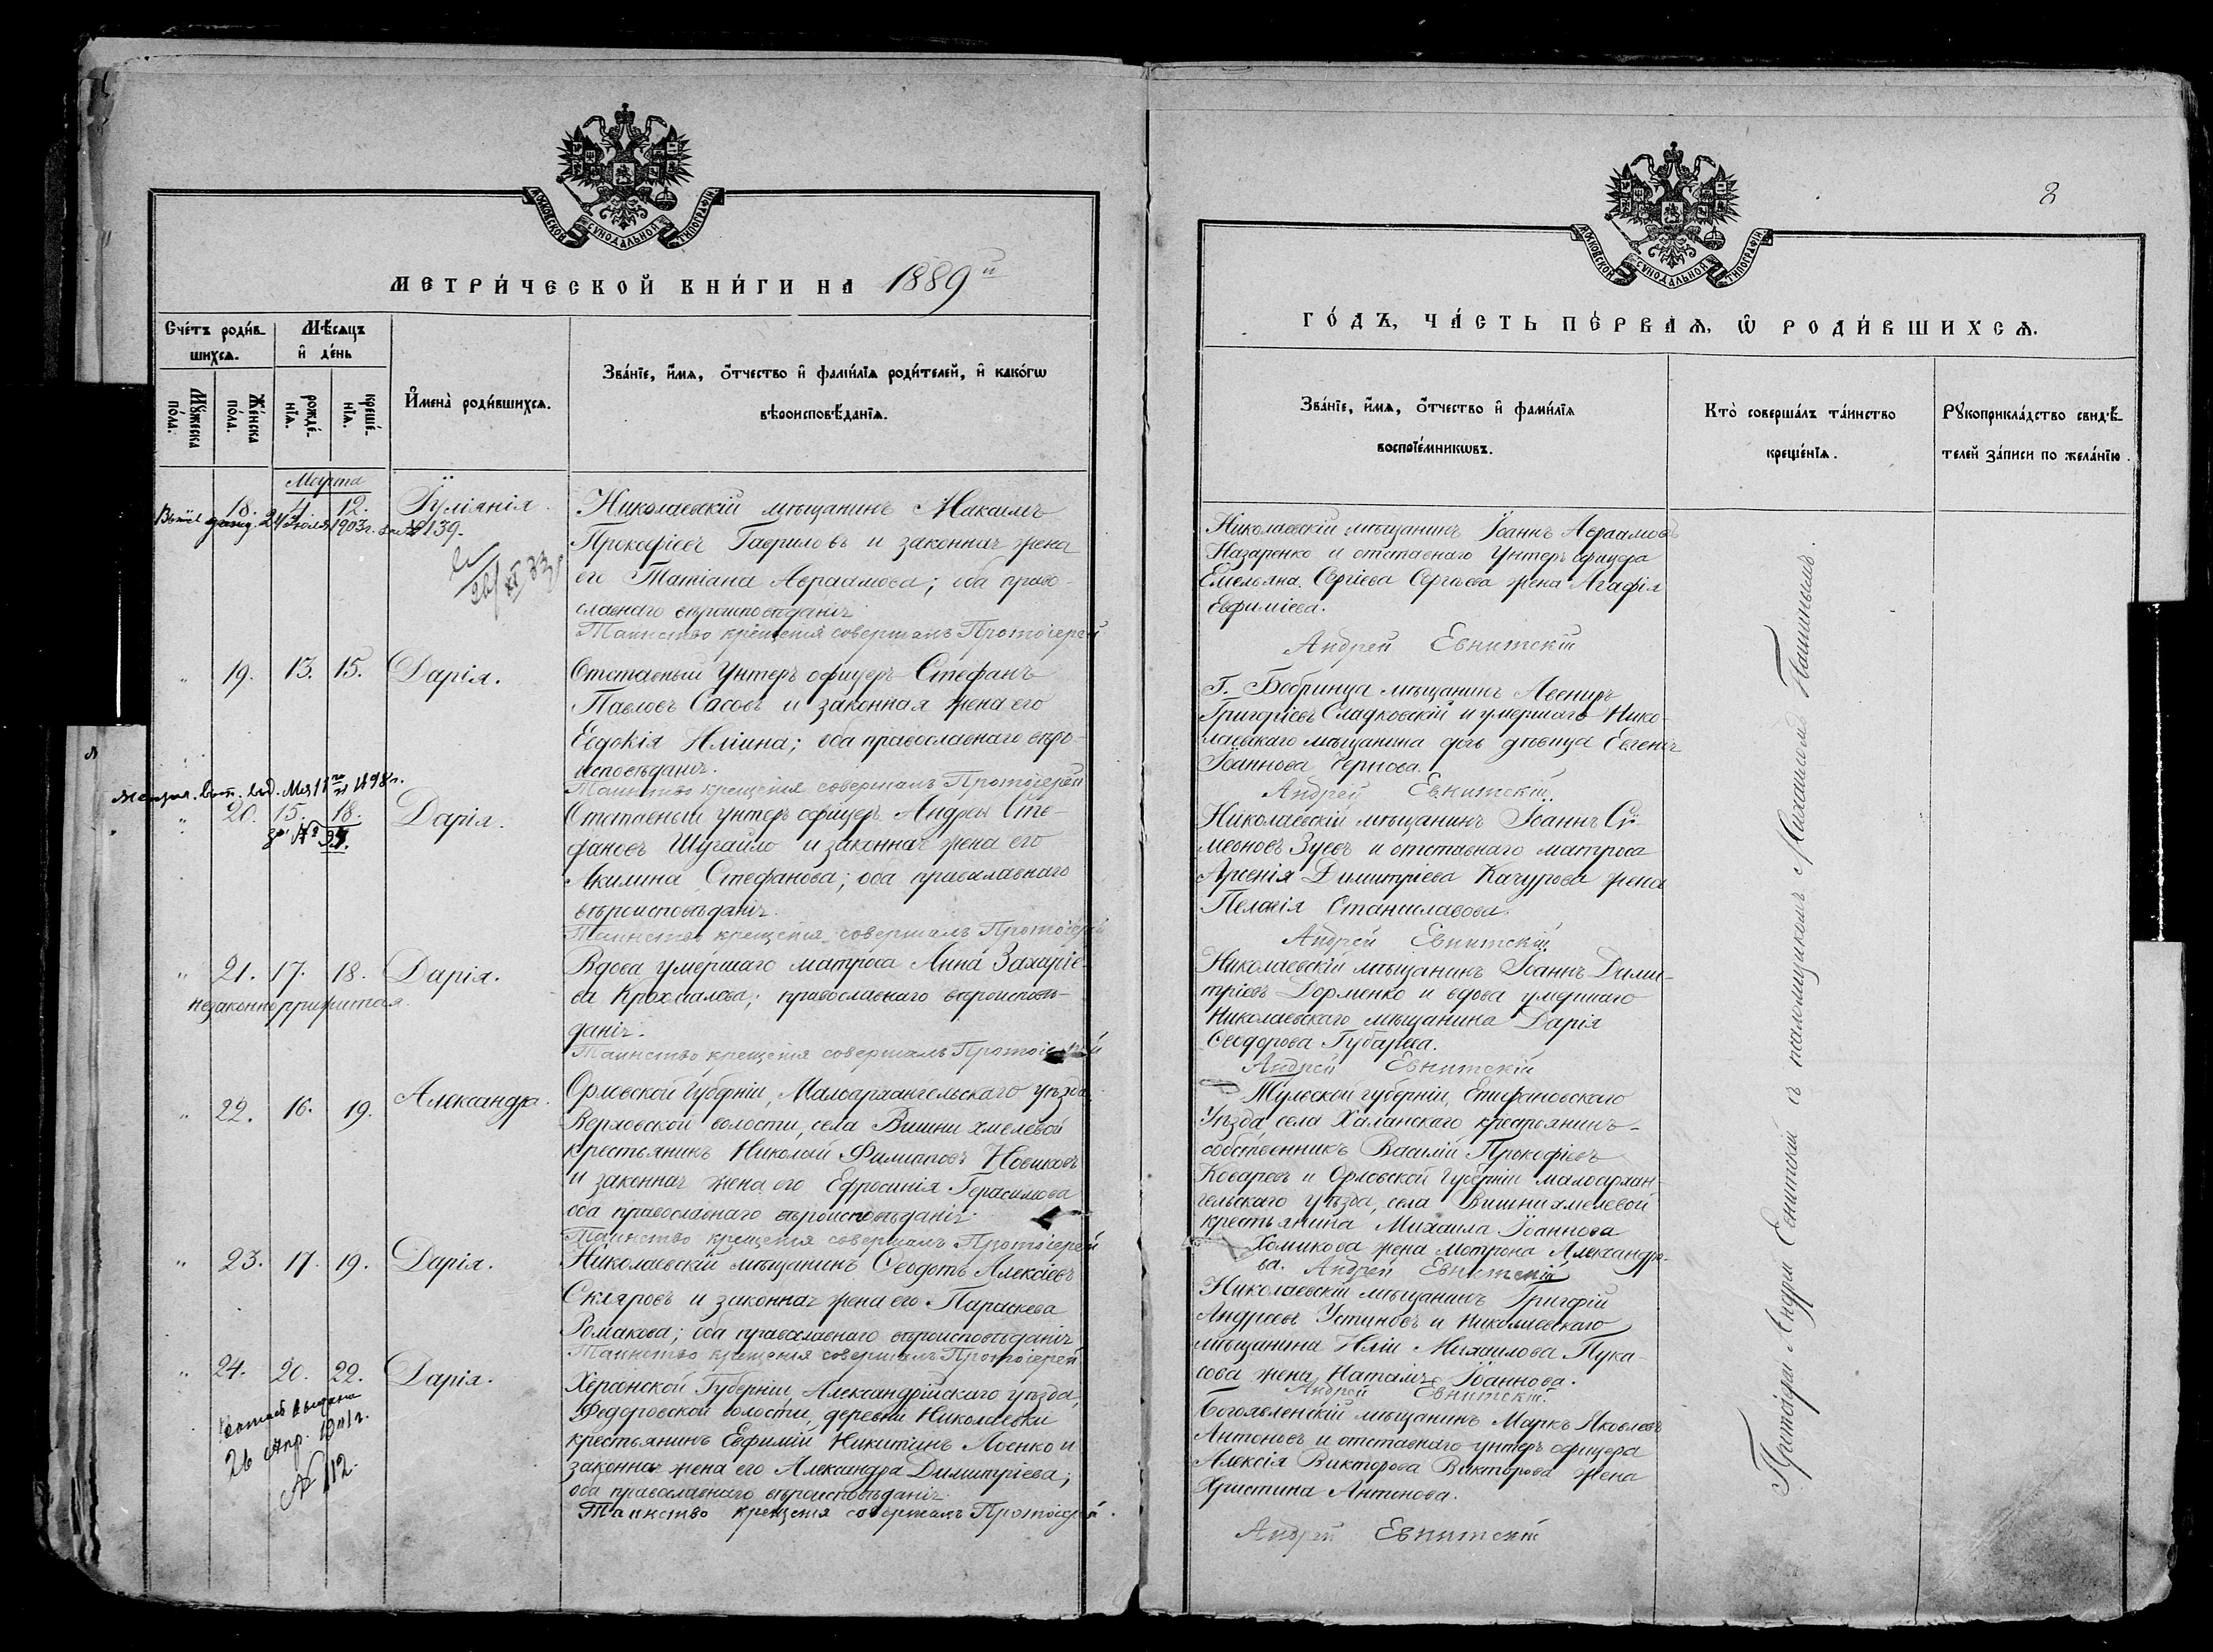 МОСКОВСКОЙ СѴНОДАЛЬНОЙ ТИПОГРАФІИ
МЕТРИ́ЧЕСКОЙ КНИ́ГИ НА 1889й
Сче́тъ роди́в-
шихся.
Мѣ́сяцъ
и҆ де́нь
Мꙋ́жеска по́ла.
Же́нска по́ла.
рожде́нїя.
креще́нїя.
И҆мена̀ роди́вшихся.
Зва́нїе, и҆́мя, ѻ҆́тчество и҆ фами́лїя роди́телей, и҆ како́гѡ
вѣроисповѣ́данїя.
Марта
18. 4 12. Іуліанія.
24 Іюля 1903 г. за № 139.
Николаевскій мѣщанинъ Максимъ
Прокофіевъ Гавриловъ и законная жена
его Татіана Авраамова; оба право-
славнаго вѣроисповѣданія.
Таинство крещенія совершалъ Протоіерей
„ 19. 13. 15. Дарія.
Отставный Унтеръ офицеръ Стефанъ
Павловъ Сасовъ и законная жена его
Евдокія Иліина; оба православнаго вѣро-
исповѣданія.
Таинство крещенія совершалъ Протоіерей
Мая 11го 1898 г.
„ 20. 15. 18. Дарія.
за №
Отставный унтеръ офицеръ Андрей Сте-
фановъ Шугайло и законная жена его
Акилина Стефанова; оба православнаго
вѣроисповѣданія.
Таинство крещенія совершалъ Протоіерей
„ 21. 17. 18. Дарія.
незаконноприжитая.
Вдова умершаго матроса Анна Захаріе-
ва Крохмалева; православнаго вѣроисповѣ-
данія.
Таинство крещенія совершалъ Протоіерей
„ 22. 16. 19. Александра.
Орловской Губерніи, Малоархангельскаго уѣзда,
Верховской волости, села Вишни хмелевой
крестьянинъ Николай Филипповъ Новиковъ
и законная жена его Ефросинія Герасимова
оба православнаго вѣроисповѣданія.
Таинство крещенія совершалъ Протоіерей
„ 23. 17. 19. Дарія.
Николаевскій мѣщанинъ Ѳеодотъ Алексіевъ
Скляровъ и законная жена его Параскева
Ромакова; оба православнаго вѣроисповѣданія
Таинство крещенія совершалъ Протоіерей
„ 24. 20. 22. Дарія.
выдана
26 Апр. 1911 г.
№ 112.
Херсонской Губерніи, Александрійскаго уѣзда,
Федоровской волости, деревни Николаевки
крестьянинъ Евфимій Никитинъ Лоенко и
законная жена его Александра Димитріева;
оба православнаго вѣроисповѣданія.
Таинство крещенія совершалъ Протоіерей
МОСКОВСКОЙ СѴНОДАЛЬНОЙ ТИПОГРАФІИ
8
ГО́ДЪ, ЧА́СТЬ ПЕ́РВАЯ, Ѡ҆ РОДИ́ВШИХСЯ.
Зва́нїе, и҆́мя, ѻ҆́тчество и҆ фами́лїя
воспрїе́мникѡвъ.
Кто̀ соверша́лъ та́инство
креще́нїя.
Рꙋкоприкла́дство свидѣ́-
телей за́писи по жела́нїю.
Николаевскій мѣщанинъ Іоаннъ Авраамовъ
Назаренко и отставнаго Унтеръ офицера
Емельяна Сергіева Сергѣева жена Агафія
Евфиміева.
Андрей Евнитскій
Г. Бобринца мѣщанинъ Авениръ
Григоріевъ Сладковскій и умершаго Нико-
лаевскаго мѣщанина дочь дѣвица Евгенія
Іоаннова Чернова.
Андрей Евнитскій
Николаевскій мѣщанинъ Іоаннъ Сѵ-
меоновъ Зуевъ и отставнаго матроса
Арсенія Димитріева Качурова жена
Пелагія Станиславова.
Андрей Евнитскій
Николаевскій мѣщанинъ Іоаннъ Дими-
тріевъ Дорменко и вдова умершаго
Николаевскаго мѣщанина Дарія
Ѳеодорова Губарева.
Андрей Евнитскій
Тульской губерніи, Епифановскаго
Уѣзда, села Халанскаго крестьянинъ-
собственникъ Василій Прокофіевъ
Коваревъ и Орловской Губерніи Малоархан-
гельскаго уѣзда, села Вишнихмелевой
крестьянина Михаила Іоаннова
Хомикова жена Матрона Александро-
ва. Андрей Евнитскій
Николаевскій мѣщанинъ Григорій
Андреевъ Устиновъ и Николаевскаго
мѣщанина Иліи Михаилова Пука-
сова жена Наталія Іоаннова.
Андрей Евнитскій.
Богоявленскій мѣщанинъ Маркъ Яковлевъ
Антоновъ и отставнаго унтеръ офицера
Алексія Викторова Викторова жена
Христина Антонова.
Андрей Евнитскій
Протоіерей Андрей Евнитскій съ псаломщикомъ Михаиломъ